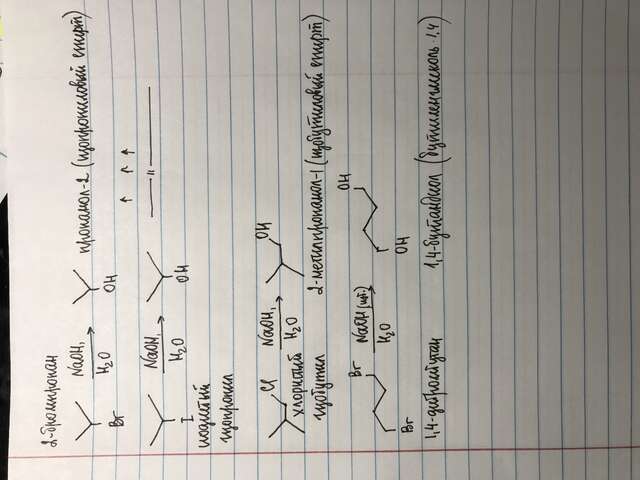 2-бромпропан
NaOH,
H2O
Br
OH
пропанол-2 (изопропиловый спирт)
NaOH,
H2O
I
OH
— " —
иодистый
изопропил
Cl
NaOH,
H2O
OH
хлористый
изобутил
2-метилпропанол-1 (изобутиловый спирт)
Br
NaOH (изб.)
H2O
Br
OH
OH
1,4-дибромбутан
1,4-бутандиол (бутиленгликоль-1,4)